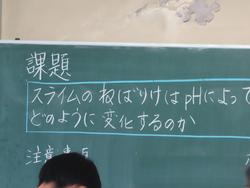 課題
スライムのねばりけはpHによって
どのように変化するのか
注意